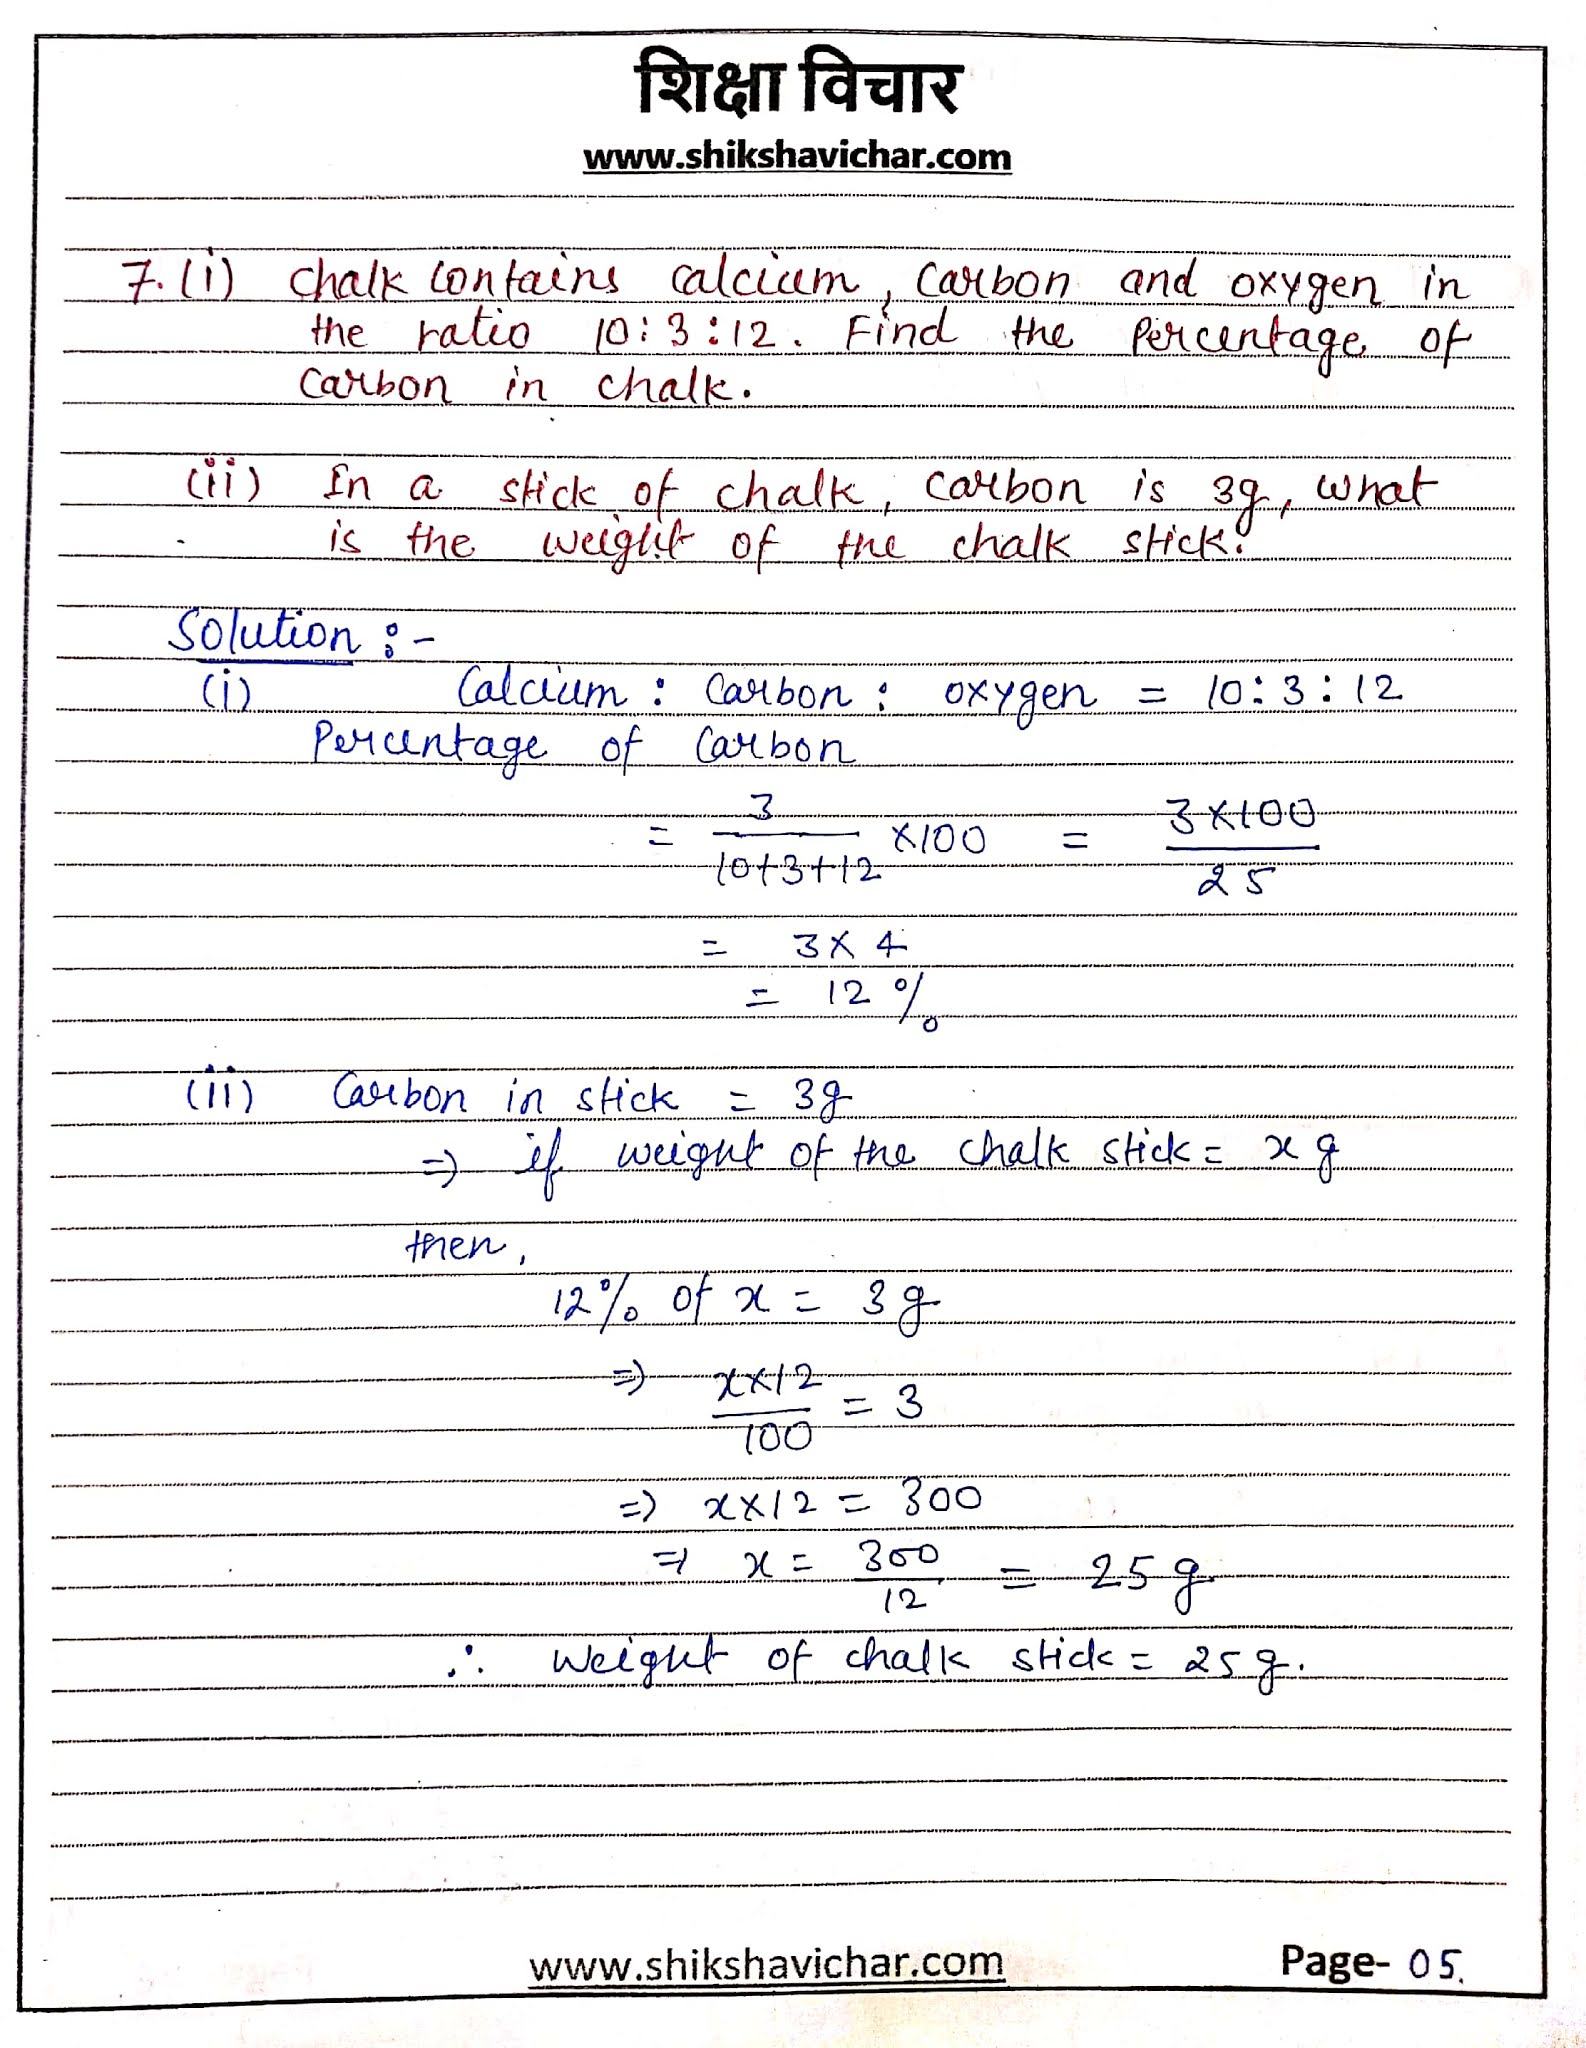 शिक्षा विचार
www.shikshavichar.com
7.(i) Chalk contains calcium, carbon and oxygen in
the ratio 10:3:12. Find the percentage of
carbon in chalk.
(ii) In a stick of chalk, carbon is 3g, what
is the weight of the chalk stick?
Solution :-
(i) Calcium : Carbon : oxygen = 10:3:12
Percentage of Carbon
= 3/(10+3+12) ×100 = (3×100)/25
= 3×4
= 12%
(ii) Carbon in stick = 3g
⇒ if weight of the chalk stick = x g
then,
12% of x = 3g
⇒ (x×12)/100 = 3
⇒ x×12 = 300
⇒ x = 300/12 = 25 g
∴ weight of chalk stick = 25 g.
www.shikshavichar.com Page- 05.